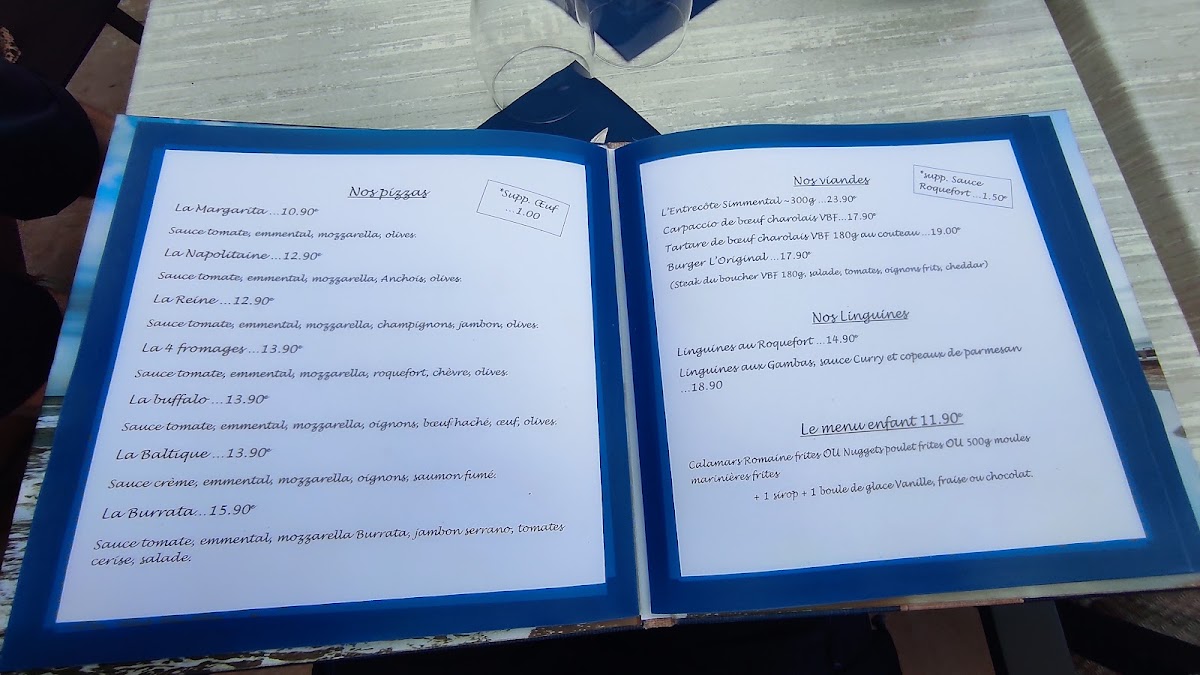 Nos pizzas
*Supp. Œuf
...1.00
La Margarita ...10.90€
Sauce tomate, emmental, mozzarella, olives.
La Napolitaine ...12.90€
Sauce tomate, emmental, mozzarella, Anchois, olives.
La Reine ...12.90€
Sauce tomate, emmental, mozzarella, champignons, jambon, olives.
La 4 fromages ...13.90€
Sauce tomate, emmental, mozzarella, roquefort, chèvre, olives.
La buffalo ...13.90€
Sauce tomate, emmental, mozzarella, oignons, bœuf haché, œuf, olives.
La Baltique ...13.90€
Sauce crème, emmental, mozzarella, oignons, saumon fumé.
La Burrata...15.90€
Sauce tomate, emmental, mozzarella Burrata, jambon serrano, tomates
cerise, salade.
Nos viandes
*supp. Sauce
Roquefort ...1.50€
L'Entrecôte Simmental ~300g ...23.90€
Carpaccio de bœuf charolais VBF...17.90€
Tartare de bœuf charolais VBF 180g au couteau ...19.00€
Burger L'Original ...17.90€
(Steak du boucher VBF 180g, salade, tomates, oignons frits, cheddar)
Nos Linguines
Linguines au Roquefort ...14.90€
Linguines aux Gambas, sauce Curry et copeaux de parmesan
...18.90
Le menu enfant 11.90€
Calamars Romaine frites OU Nuggets poulet frites OU 500g moules
marinières frites
+ 1 sirop + 1 boule de glace Vanille, fraise ou chocolat.